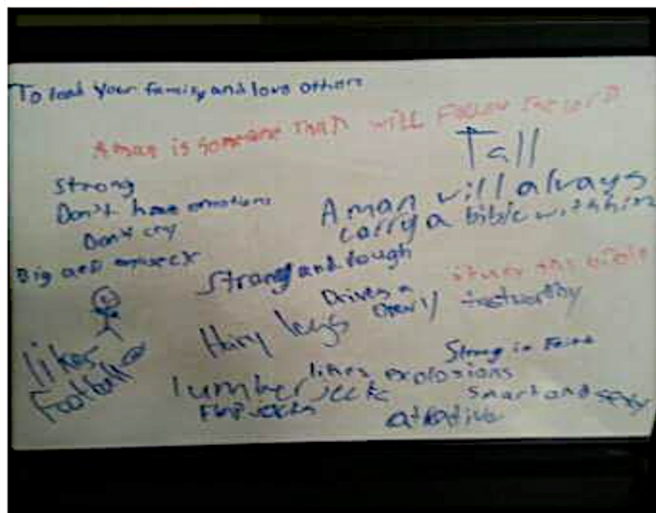 To lead your family and love others
A man is someone that will Follow the Lord
Tall
Strong
Don't have emotions
Don't cry
A man will always
carry a bible with him
Big and
Strong and tough
bible
Drives a
Chevy
trustworthy
Hary legs
likes
Football
Strong in Faith
likes explosions
lumber jeck
Flap jecks
Smart and sexy
atrative